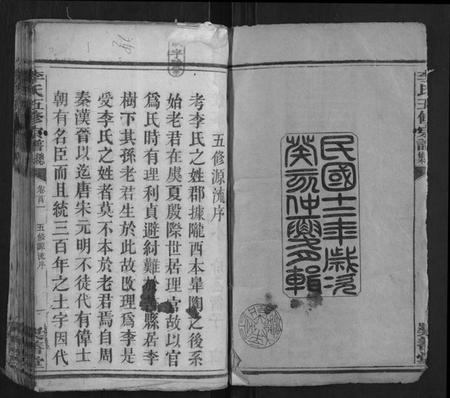 民國十二年歲次
癸亥仲夏輯
五修源流序
考李氏之姓郡據隴西本皐陶之後系
始老君在虞夏殷際世居理官故以官
爲氏時有理利貞避紂難縣居李
樹下其孫老君生於此故改理爲李是
受李氏之姓者莫不本於老君焉自周
秦漢晉以迄唐宋元明不徒代有偉士
朝有名臣而且統三百年之土字因代
李氏五修宗譜總 卷首 五修源流序